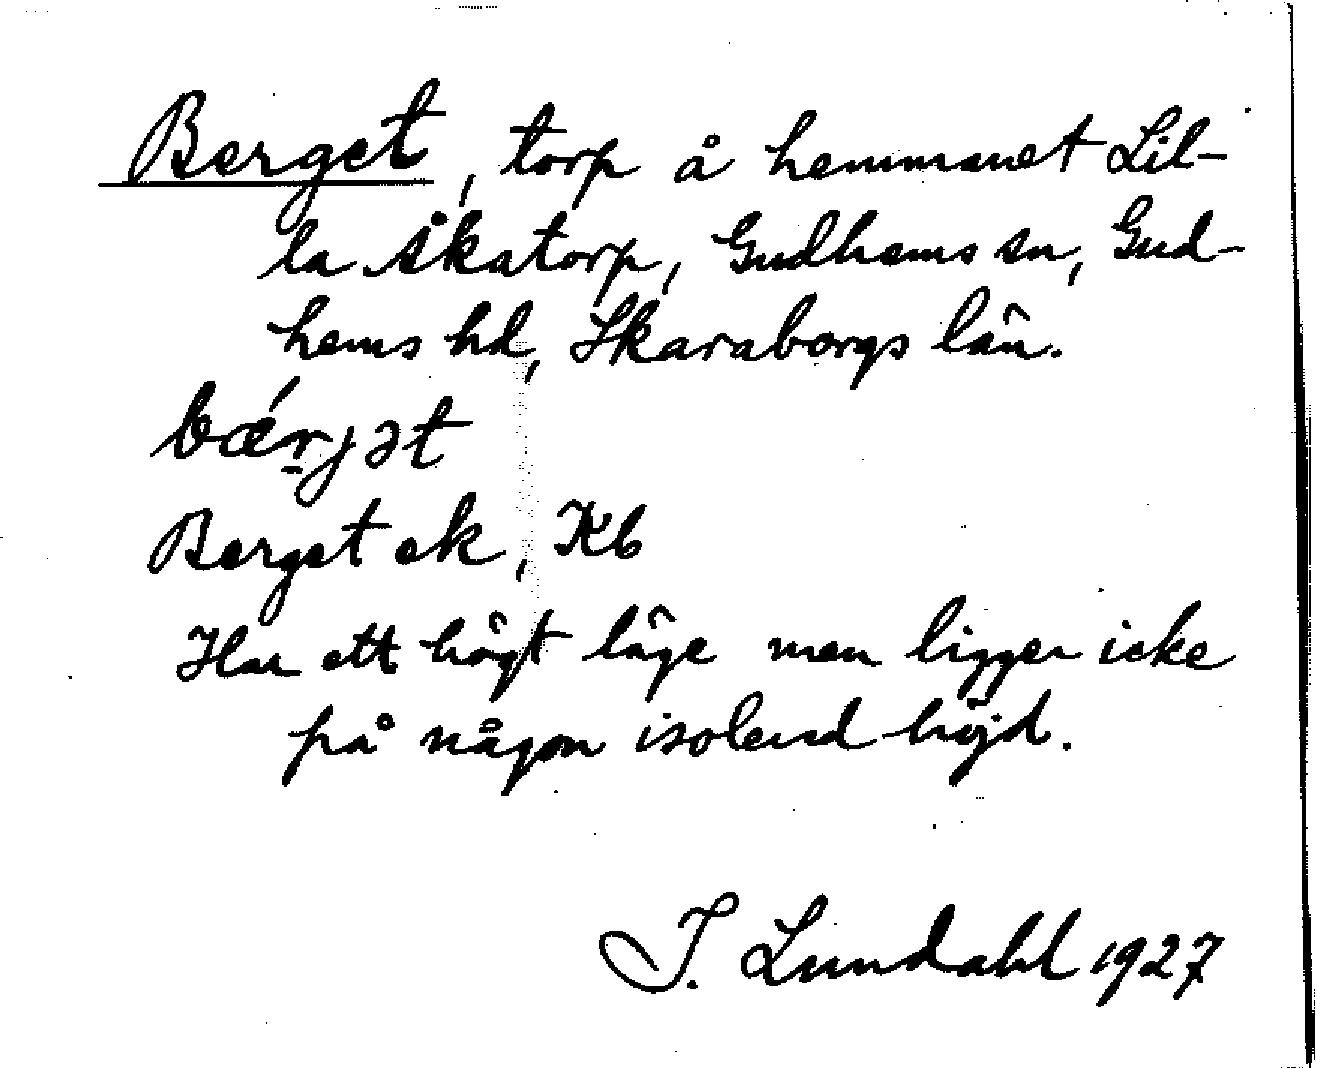 Berget, torp å hemmanet Lil-
la Åkatorp, Gudhems sn, Gud-
hems hd, Skaraborgs län.
bǽrjət
Berget ek, Kb
Har ett högt läge men ligger icke
på någon isolerad höjd.
J. Lundahl 1927